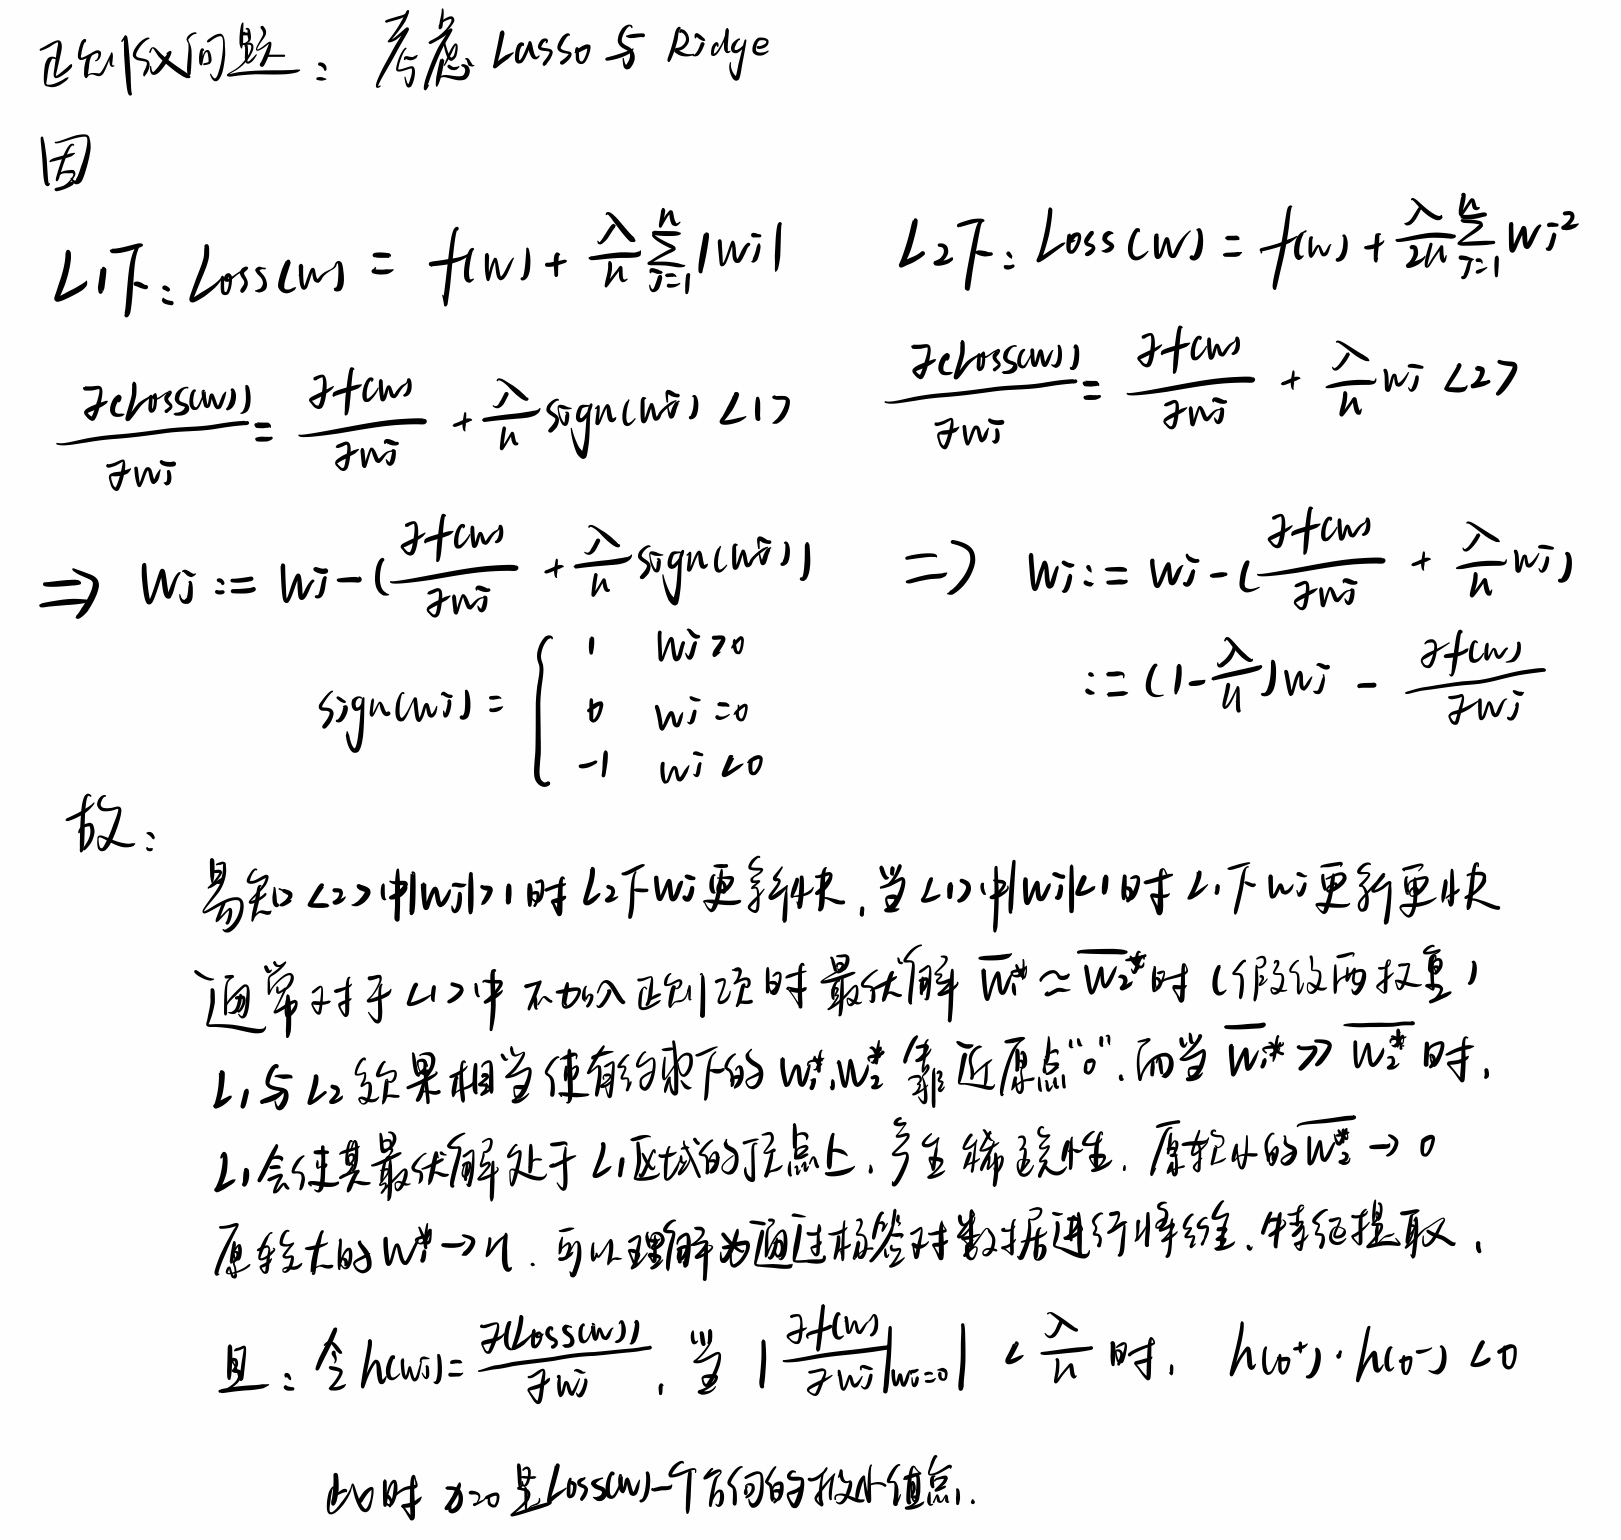 正则化问题：考虑 Lasso 与 Ridge
因
L1下：Loss(w) = f(w) + λ/n ∑_{j=1}^{n} |wj|    L2下：Loss(w) = f(w) + λ/2n ∑_{j=1}^{n} wj²
∂(Loss(w))/∂wj = ∂f(w)/∂wj + λ/n sign(wj) <1>    ∂(Loss(w))/∂wj = ∂f(w)/∂wj + λ/n wj <2>
⇒ wj := wj - (∂f(w)/∂wj + λ/n sign(wj))    ⇒ wj := wj - (∂f(w)/∂wj + λ/n wj)
sign(wj) = { 1  wj>0    := (1-λ/n)wj - ∂f(w)/∂wj
0  wj=0
-1  wj<0
故：
易知 <2>中|wj|>1时 L2下wj更新快，当<1>中|wj|<1时 L1下wj更新更快
通常对于<1>中不加入正则项时最优解 w̅1* ≈ w̅2* 时（假设两权重）
L1与L2效果相当使有约束下的 w1*,w2* 靠近原点“0”，而当 w̅1* >> w̅2* 时，
L1会使其最优解处于L1区域的顶点上，产生稀疏性，原较小的 w̅2* → 0
原较大的 w1* → 可以理解为通过 对数据进行降维，特征提取，
且：令 h(wj) = ∂(Loss(w))/∂wj，当 |∂f(w)/∂wj|_{wj=0}| < λ/n 时，h(0⁺)·h(0⁻) < 0
此时 x=0 是Loss(w)一个方向的极小值点.